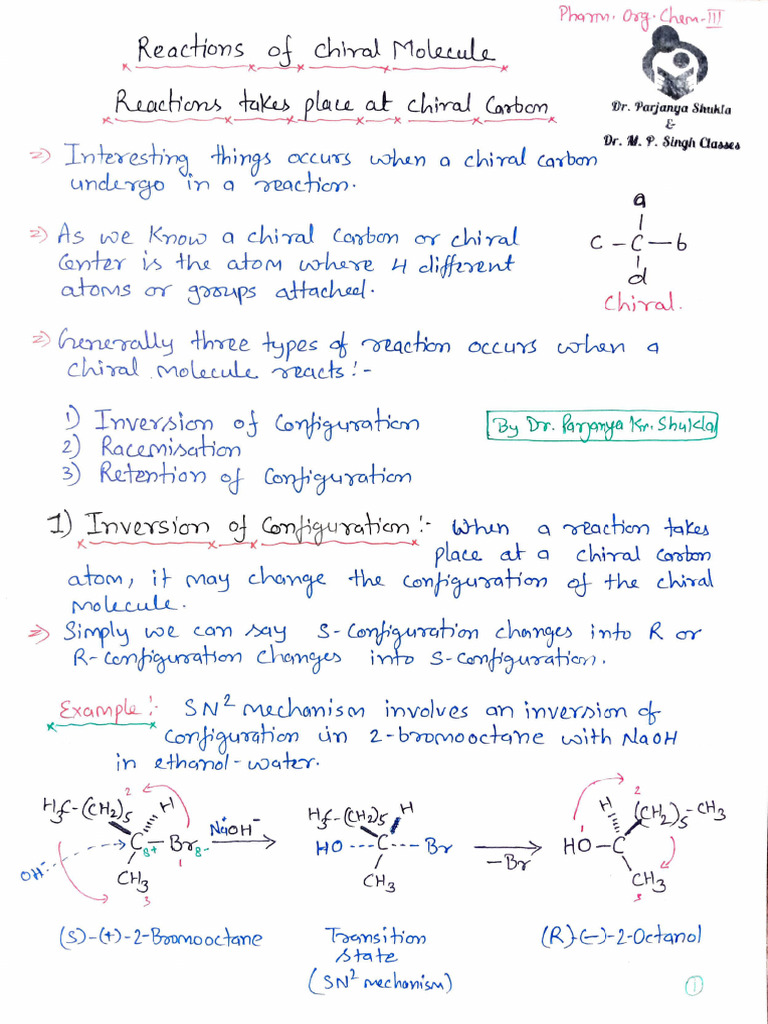 Pharm. Org. Chem-III
Reactions of Chiral Molecule
Reactions takes place at Chiral Carbon
Dr. Parjanya Shukla
&
Dr. M. P. Singh Classes
⇒ Interesting things occurs when a chiral carbon
undergo in a reaction.
⇒ As we know a chiral carbon or chiral
center is the atom where 4 different
atoms or groups attached.
a
C - C - b
d
Chiral.
⇒ Generally three types of reaction occurs when a
chiral molecule reacts:-
1) Inversion of Configuration
2) Racemisation
3) Retention of Configuration
By Dr. Parjanya Kr. Shukla
1) Inversion of Configuration:- When a reaction takes
place at a chiral carbon
atom, it may change the configuration of the chiral
molecule.
⇒ Simply we can say S-Configuration changes into R or
R-Configuration changes into S-configuration.
Example:- SN² mechanism involves an inversion of
configuration in 2-bromooctane with NaOH
in ethanol-water.
2
H₃C-(CH₂)₅ H
C - Br
δ+ δ-
1
OH⁻
CH₃
3
NaOH⁻
H₃C-(CH₂)₅ H
HO---C---Br
CH₃
-Br
2
H (CH₂)₅-CH₃
1
HO-C
CH₃
3
(S)-(+)-2-Bromooctane
Transition
state
(SN² mechanism)
(R)-(-)-2-Octanol
1